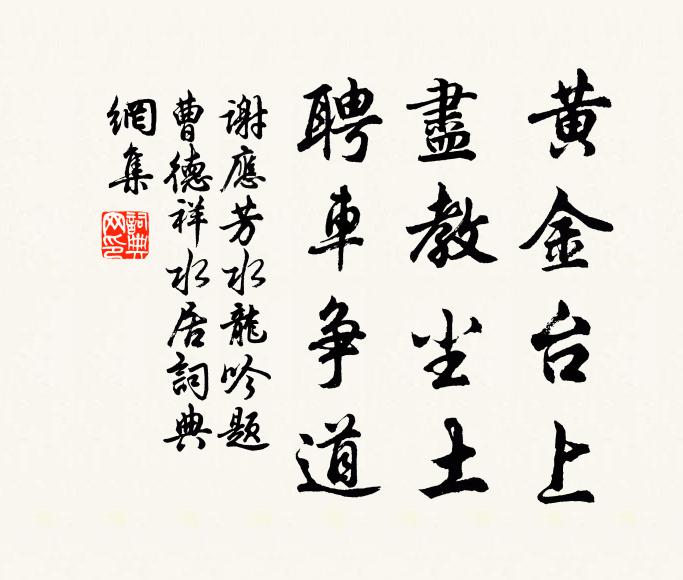 黄金台上
盡教尘土
聘車争道
謝應芳水龍吟题
曹德祥水居詞典
網集
詞典
网印